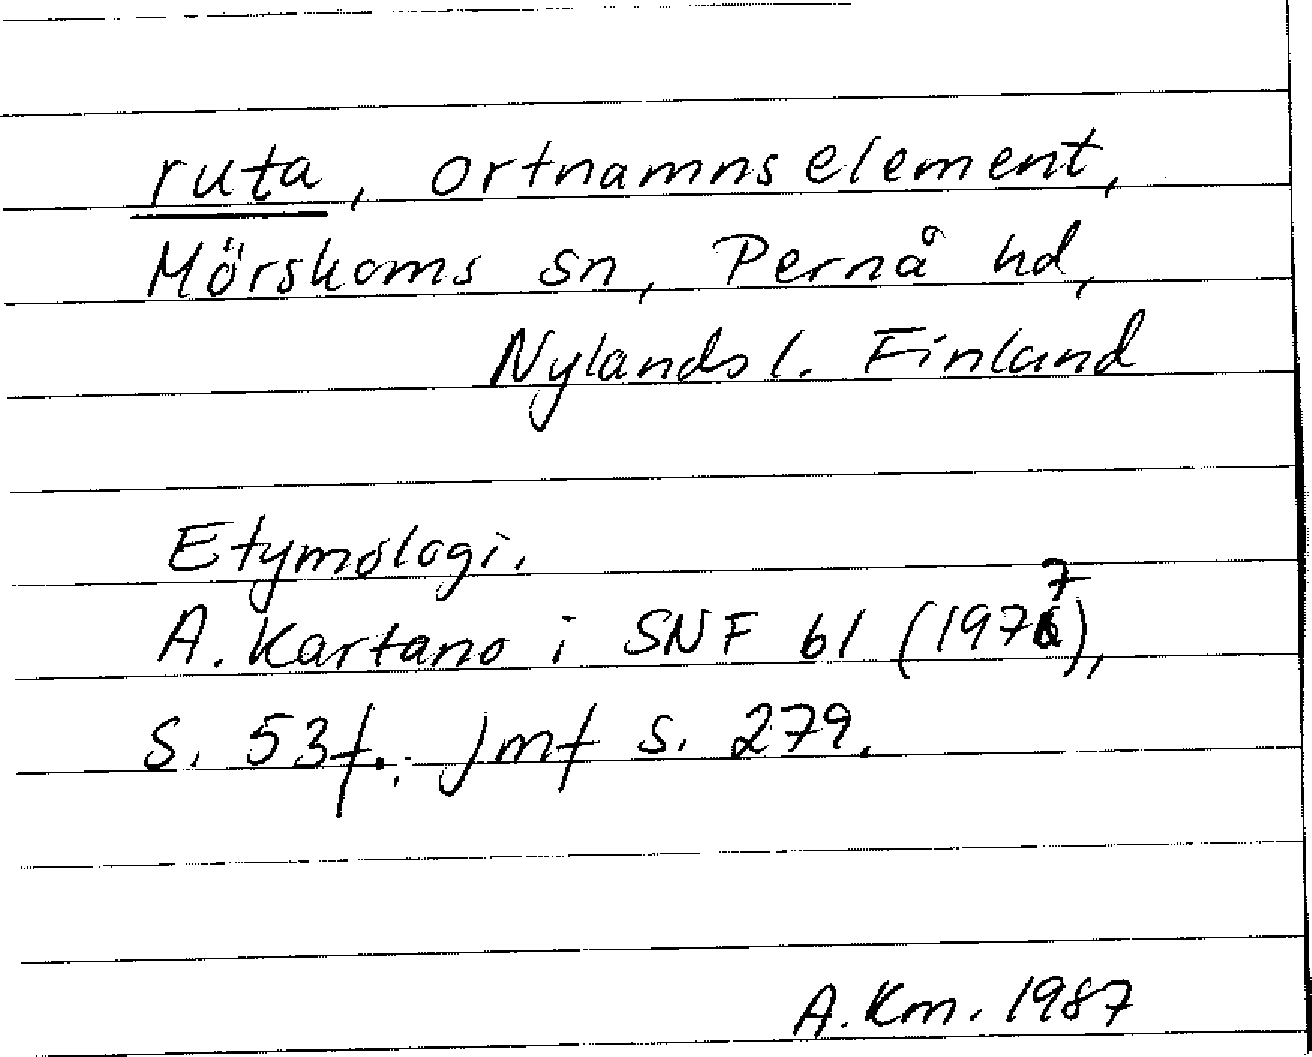 ruta, ortnamnselement,
Mörskoms sn, Pernå hd,
Nylands l. Finland
Etymologi.
A. Kartano i SNF 61 (1977),
s. 53f.; jmf s. 279.
A. Km. 1987